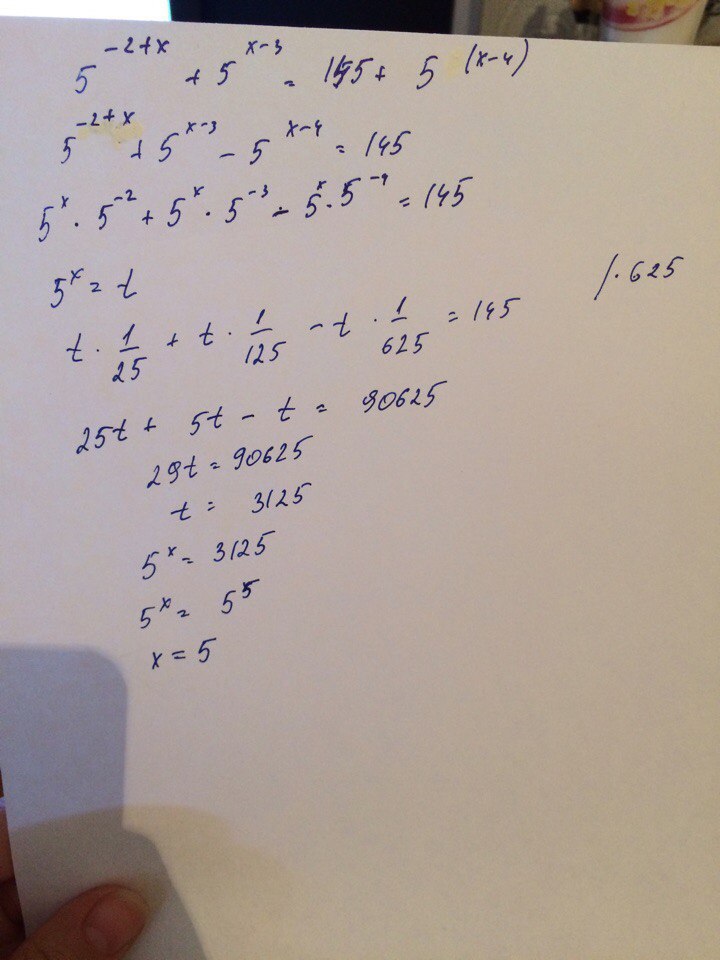 5^(-2+x) + 5^(x-3) = 145 + 5^(x-4)
5^(-2+x) + 5^(x-3) - 5^(x-4) = 145
5^x · 5^(-2) + 5^x · 5^(-3) - 5^x · 5^(-4) = 145
5^x = t
t · 1/25 + t · 1/125 - t · 1/625 = 145 /· 625
25t + 5t - t = 90625
29t = 90625
t = 3125
5^x = 3125
5^x = 5^5
x = 5